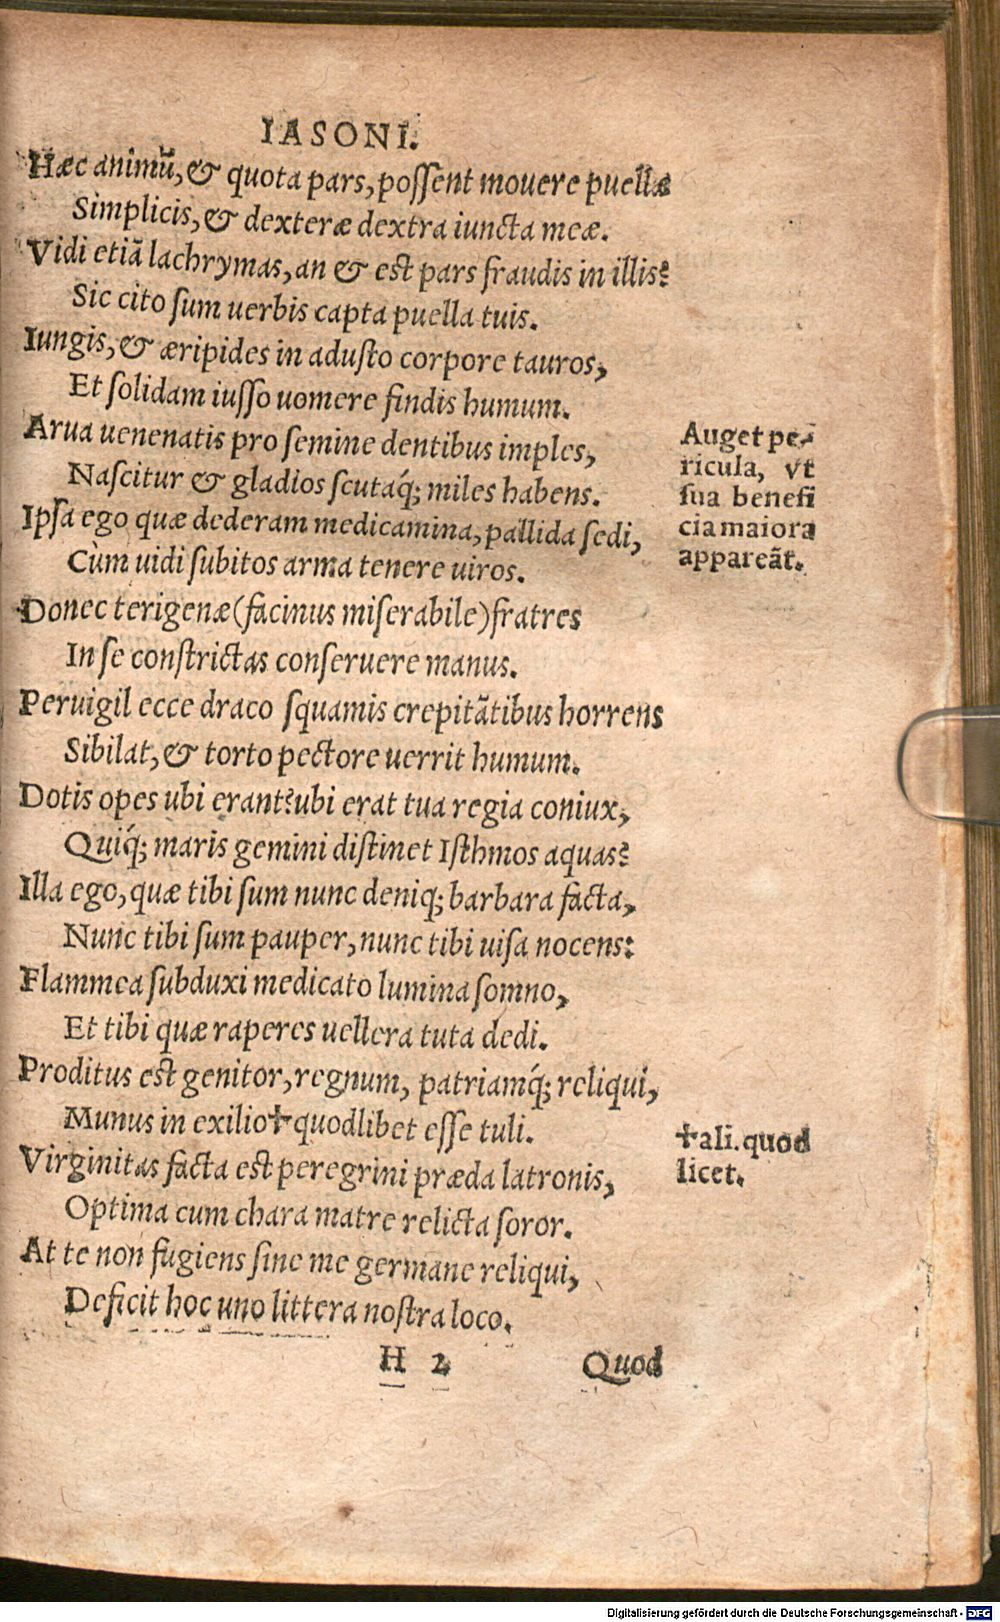 IASONI.
Hæc animū, & quota pars, possent mouere puellæ
Simplicis, & dexteræ dextra iuncta meæ.
Vidi etiā lachrymas, an & est pars fraudis in illis?
Sic cito sum uerbis capta puella tuis.
Iungis, & æripides in adusto corpore tauros,
Et solidam iusso uomere findis humum.
Arua uenenatis pro semine dentibus imples,
Nascitur & gladios scutaq́; miles habens.
Ipsa ego quæ dederam medicamina, pallida sedi,
Cùm uidi subitos arma tenere uiros.
Donec terigenæ (facinus miserabile) fratres
In se constrictas conseruere manus.
Peruigil ecce draco squamis crepitātibus horrens
Sibilat, & torto pectore uerrit humum.
Dotis opes ubi erant? ubi erat tua regia coniux,
Quiq́; maris gemini distinet Isthmos aquas?
Illa ego, quæ tibi sum nunc deniq; barbara facta,
Nunc tibi sum pauper, nunc tibi uisa nocens:
Flammea subduxi medicato lumina somno,
Et tibi quæ raperes uellera tuta dedi.
Proditus est genitor, regnum, patriamq́; reliqui,
Munus in exilio ✝ quodlibet esse tuli.
Virginitas facta est peregrini præda latronis,
Optima cum chara matre relicta soror.
At te non fugiens sine me germane reliqui,
Deficit hoc uno littera nostra loco.
H 2
Quod
Auget pe-
ricula, vt
sua benefi
cia maiora
appareāt.
✝ali. quod
licet.
Digitalisierung gefördert durch die Deutsche Forschungsgemeinschaft - DFG